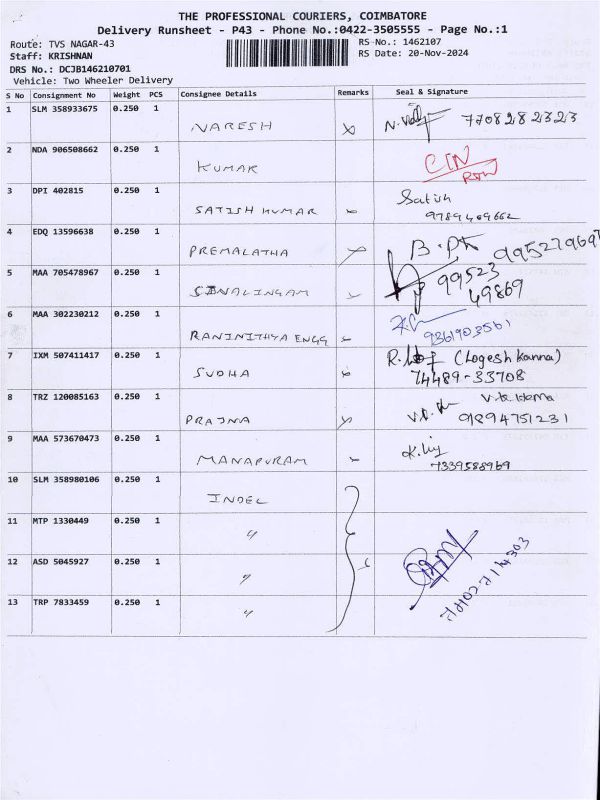 THE PROFESSIONAL COURIERS, COIMBATORE
Delivery Runsheet - P43 - Phone No.:0422-3505555 - Page No.:1
Route: TVS NAGAR-43 RS-No.: 1462107
Staff: KRISHNAN RS Date: 20-Nov-2024
DRS No.: DCJB146210701
Vehicle: Two Wheeler Delivery
S No Consignment No Weight PCS Consignee Details Remarks Seal & Signature
1 SLM 358933675 0.250 1 NARESH 7708282323
2 NDA 906508662 0.250 1 KUMAR
3 DPI 402815 0.250 1 SATISH KUMAR Satish
9789469662
4 EDQ 13596638 0.250 1 PREMALATHA 995279697
5 MAA 705478967 0.250 1 SIVALINGAM 99523
49869
6 MAA 302230212 0.250 1 RANINITHYA ENGG 9361903561
7 IXM 507411417 0.250 1 SUDHA (Logesh Kanna)
74489-33708
8 TRZ 120085163 0.250 1 PRAJNA V.R. Hema
91894751231
9 MAA 573670473 0.250 1 MANAPURAM 7339588969
10 SLM 358980106 0.250 1 INDEL
11 MTP 1330449 0.250 1 "
12 ASD 5045927 0.250 1 "
13 TRP 7833459 0.250 1 "